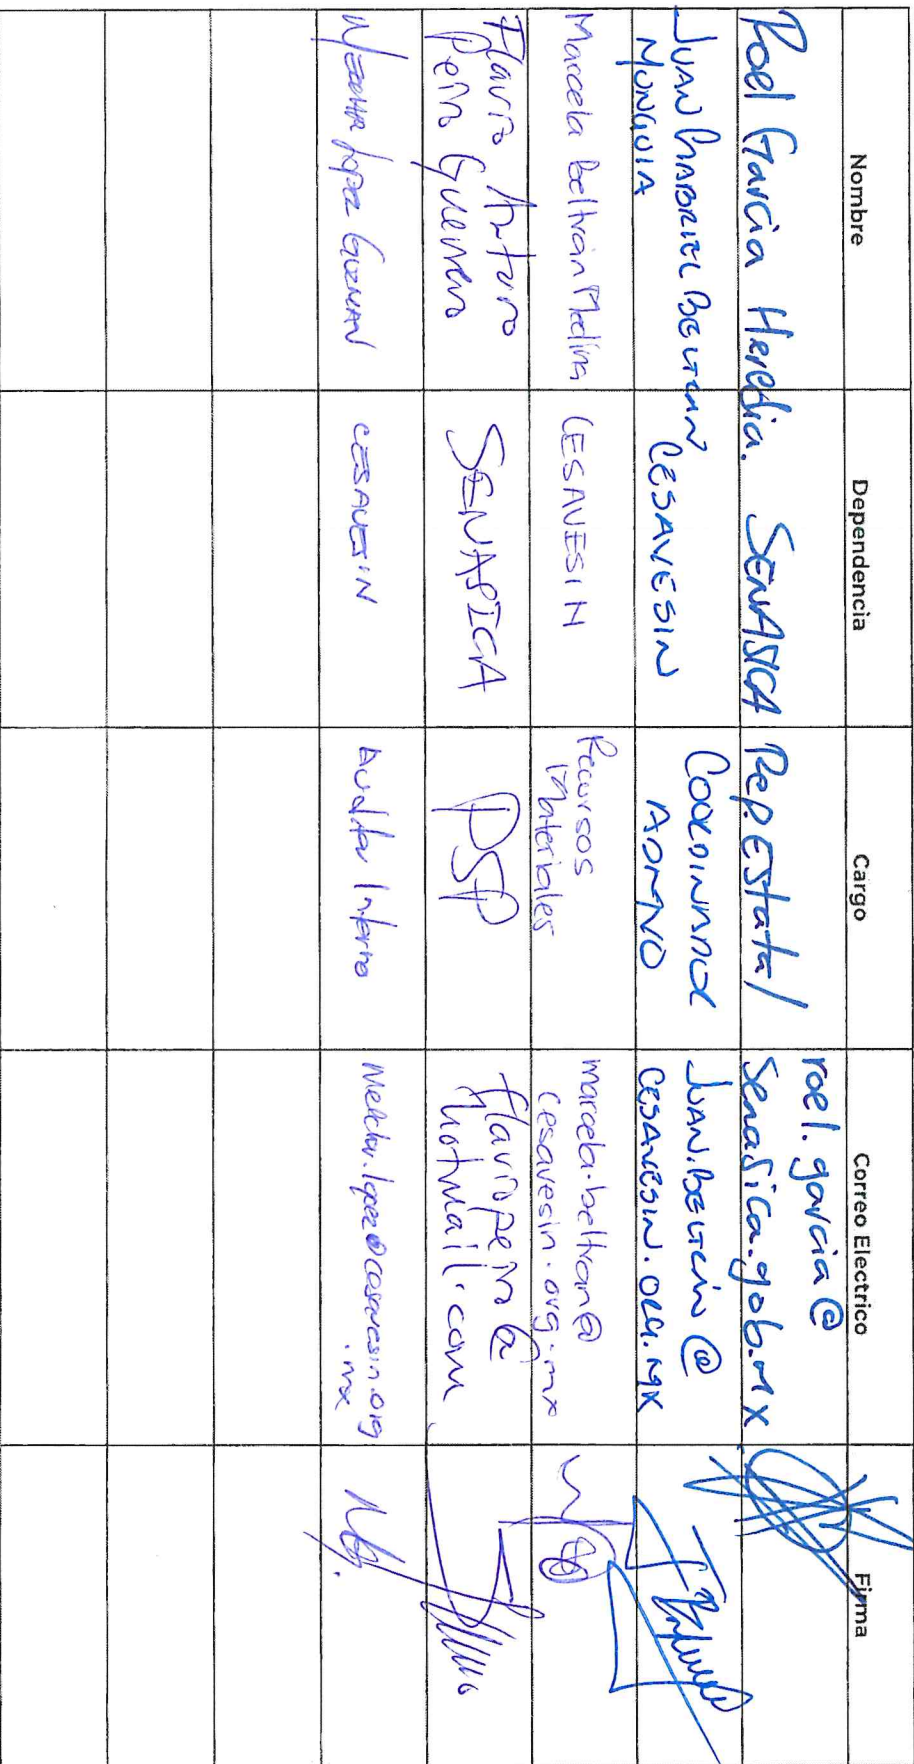 Nombre
Dependencia
Cargo
Correo Electrico
Firma
Roel García Heredia.
SENASICA
Rep. Estatal
roel.garcia@
senasica.gob.mx
JUAN GHABRIEL BELTRAN
MUNGUIA
CESAVESIN
COORDINADOR
ADMVO
JUAN.BELTRÁN@
CESAVESIN.ORG.MX
Marcela Beltrán Medina
CESAVESIN
Recursos
Materiales
marcela.beltran@
cesavesin.org.mx
Flavio Arturo
Peiro Guerrero
SENASICA
PSP
flaviopeiro@
hotmail.com
Lopez Guzman
CESAVESIN
Auditor Interno
Melchor.lopez@cesavesin.org
.mx